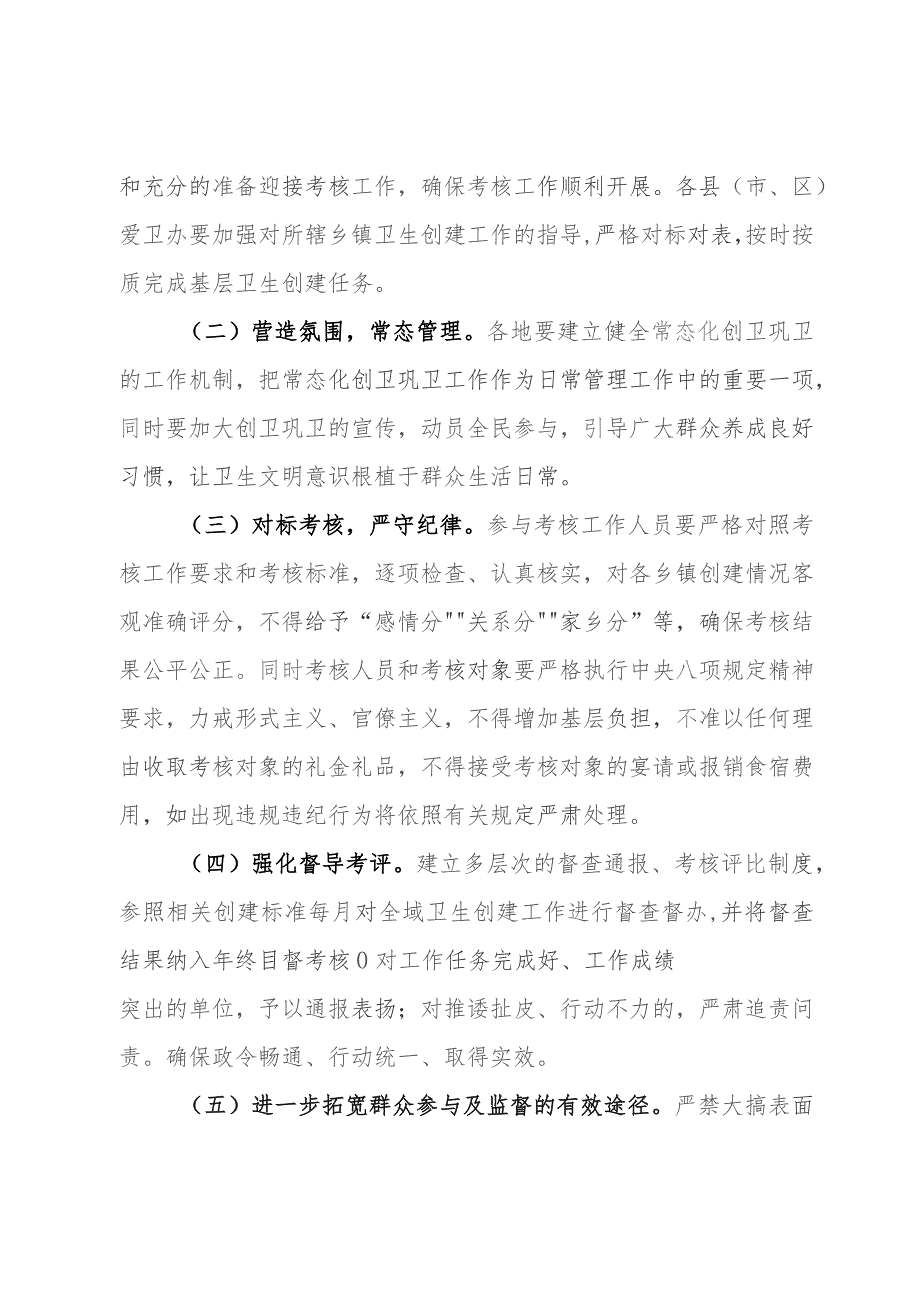 和充分的准备迎接考核工作，确保考核工作顺利开展。各县（市、区）
爱卫办要加强对所辖乡镇卫生创建工作的指导,严格对标对表,按时按
质完成基层卫生创建任务。
（二）营造氛围，常态管理。各地要建立健全常态化创卫巩卫
的工作机制，把常态化创卫巩卫工作作为日常管理工作中的重要一项，
同时要加大创卫巩卫的宣传，动员全民参与，引导广大群众养成良好
习惯，让卫生文明意识根植于群众生活日常。
（三）对标考核，严守纪律。参与考核工作人员要严格对照考
核工作要求和考核标准，逐项检查、认真核实，对各乡镇创建情况客
观准确评分，不得给予“感情分""关系分""家乡分”等，确保考核结
果公平公正。同时考核人员和考核对象要严格执行中央八项规定精神
要求，力戒形式主义、官僚主义，不得增加基层负担，不准以任何理
由收取考核对象的礼金礼品，不得接受考核对象的宴请或报销食宿费
用，如出现违规违纪行为将依照有关规定严肃处理。
（四）强化督导考评。建立多层次的督查通报、考核评比制度，
参照相关创建标准每月对全域卫生创建工作进行督查督办,并将督查
结果纳入年终目督考核0对工作任务完成好、工作成绩
突出的单位，予以通报表扬；对推诿扯皮、行动不力的，严肃追责问
责。确保政令畅通、行动统一、取得实效。
（五）进一步拓宽群众参与及监督的有效途径。严禁大搞表面